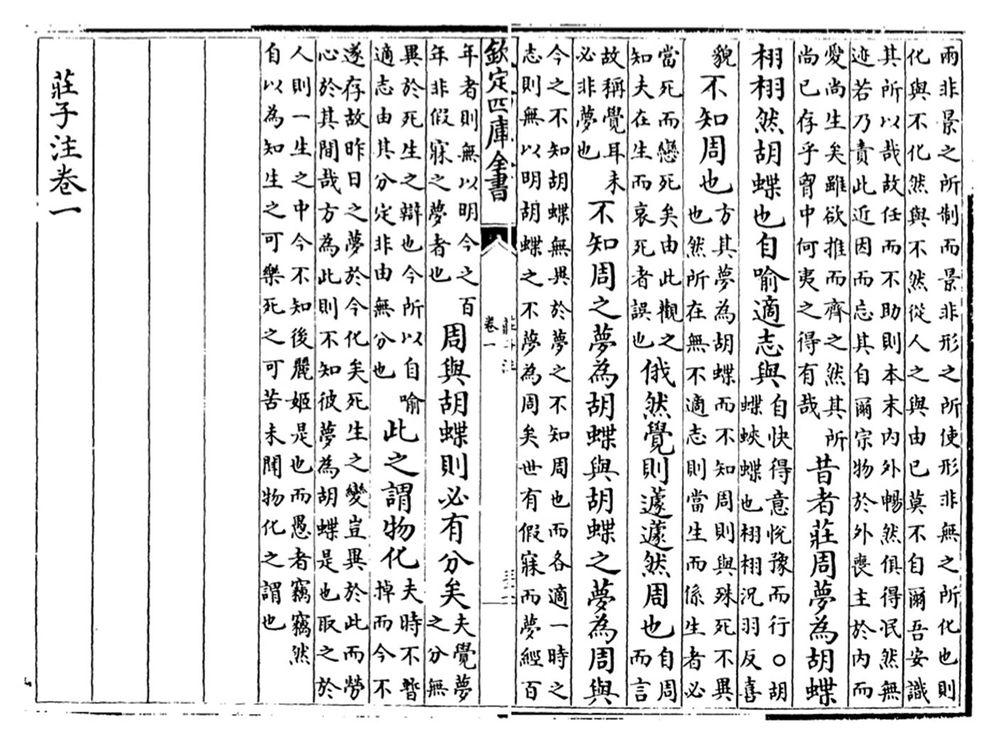 兩非景之所制而景非形之所使形非無之所化也則
化與不化然與不然從人之與由已莫不自爾吾安識
其所以哉故任而不助則本末内外暢然俱得泯然無
迹若乃責此近因而忘其自爾宗物於外喪主於内而
愛尚生矣雖欲推而齊之然其所
尚已存乎胷中何夷之得有哉
昔者莊周夢為胡蝶
栩栩然胡蝶也自喻適志與
自快得意恱豫而行○胡
蝶蛺蝶也栩栩況羽反喜
貌
不知周也
方其夢為胡蝶而不知周則與殊死不異
也然所在無不適志則當生而係生者必
當死而戀死矣由此觀之
知夫在生而哀死者誤也
俄然覺則蘧蘧然周也
自周
而言
故稱覺耳未
必非夢也
不知周之夢為胡蝶與胡蝶之夢為周與
今之不知胡蝶無異於夢之不知周也而各適一時之
志則無以明胡蝶之不夢為周矣世有假寐而夢經百
欽定四庫全書
莊子注
卷一
年者則無以明今之百
年非假寐之夢者也
周與胡蝶則必有分矣
夫覺夢
之分無
異於死生之辯也今所以自喻
適志由其分定非由無分也
此之謂物化
夫時不暫
掉而今不
遂存故昨日之夢於今化矣死生之變豈異於此而勞
心於其間哉方為此則不知彼夢為胡蝶是也取之於
人則一生之中今不知後麗姬是也而愚者竊竊然
自以為知生之可樂死之可苦未聞物化之謂也
莊子注卷一